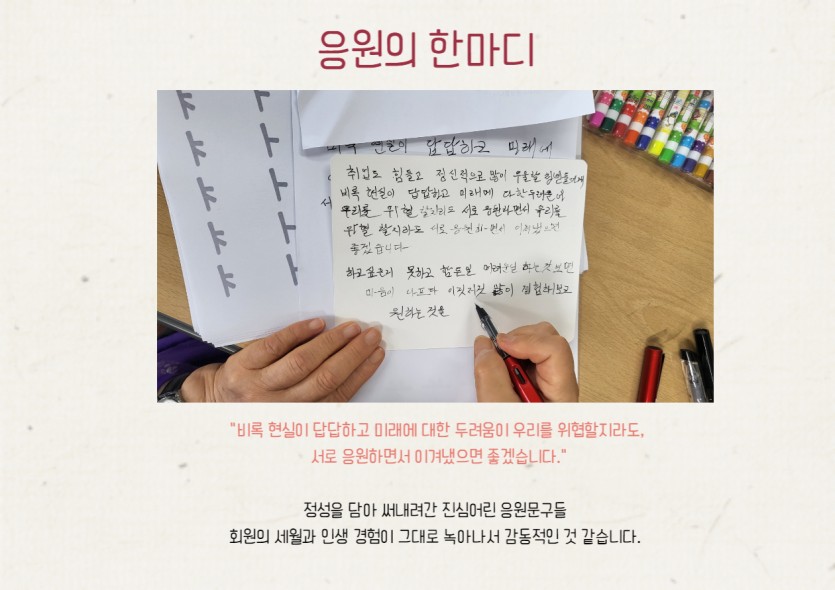 응원의 한마디
비록 현실이 답답하고 미래에
취업도 힘들고 정신적으로 많이 우울할
비록 현실이 답답하고 미래에 대한 두려움이
우리를 위협 할지라도 서로 응원하면서 우리를
위협 할지라도 서로 응원하면서 이겨냈으면
좋겠습니다
하고싶은거 못하고 힘든일 어려운일 하는것 보면
마음이 아프다 이것저것 많이 경험해보고
원하는 것을
"비록 현실이 답답하고 미래에 대한 두려움이 우리를 위협할지라도,
서로 응원하면서 이겨냈으면 좋겠습니다."
정성을 담아 써내려간 진심어린 응원문구들
회원의 세월과 인생 경험이 그대로 녹아나서 감동적인 것 같습니다.